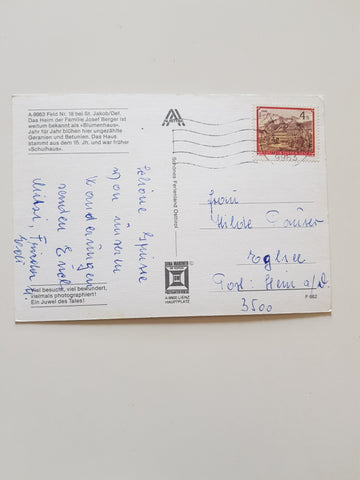 A-9963 Feld Nr. 18 bei St. Jakob/Def.
Das Heim der Familie Josef Berger ist
weitum bekannt als »Blumenhaus«.
Jahr für Jahr blühen hier ungezählte
Geranien und Betunien. Das Haus
stammt aus dem 15. Jh. und war früher
»Schulhaus«.
Schöne Grüsse
von unseren
Wanderungen
senden Euch
Mitzi,
Viel besucht, viel bewundert,
vielmals photographiert!
Ein Juwel des Tales!
Schönes Ferienland Osttirol
A-9900 LIENZ
HAUPTPLATZ
4
9963
Frau
Hilde
Post: Stein a/D.
3500
F 662